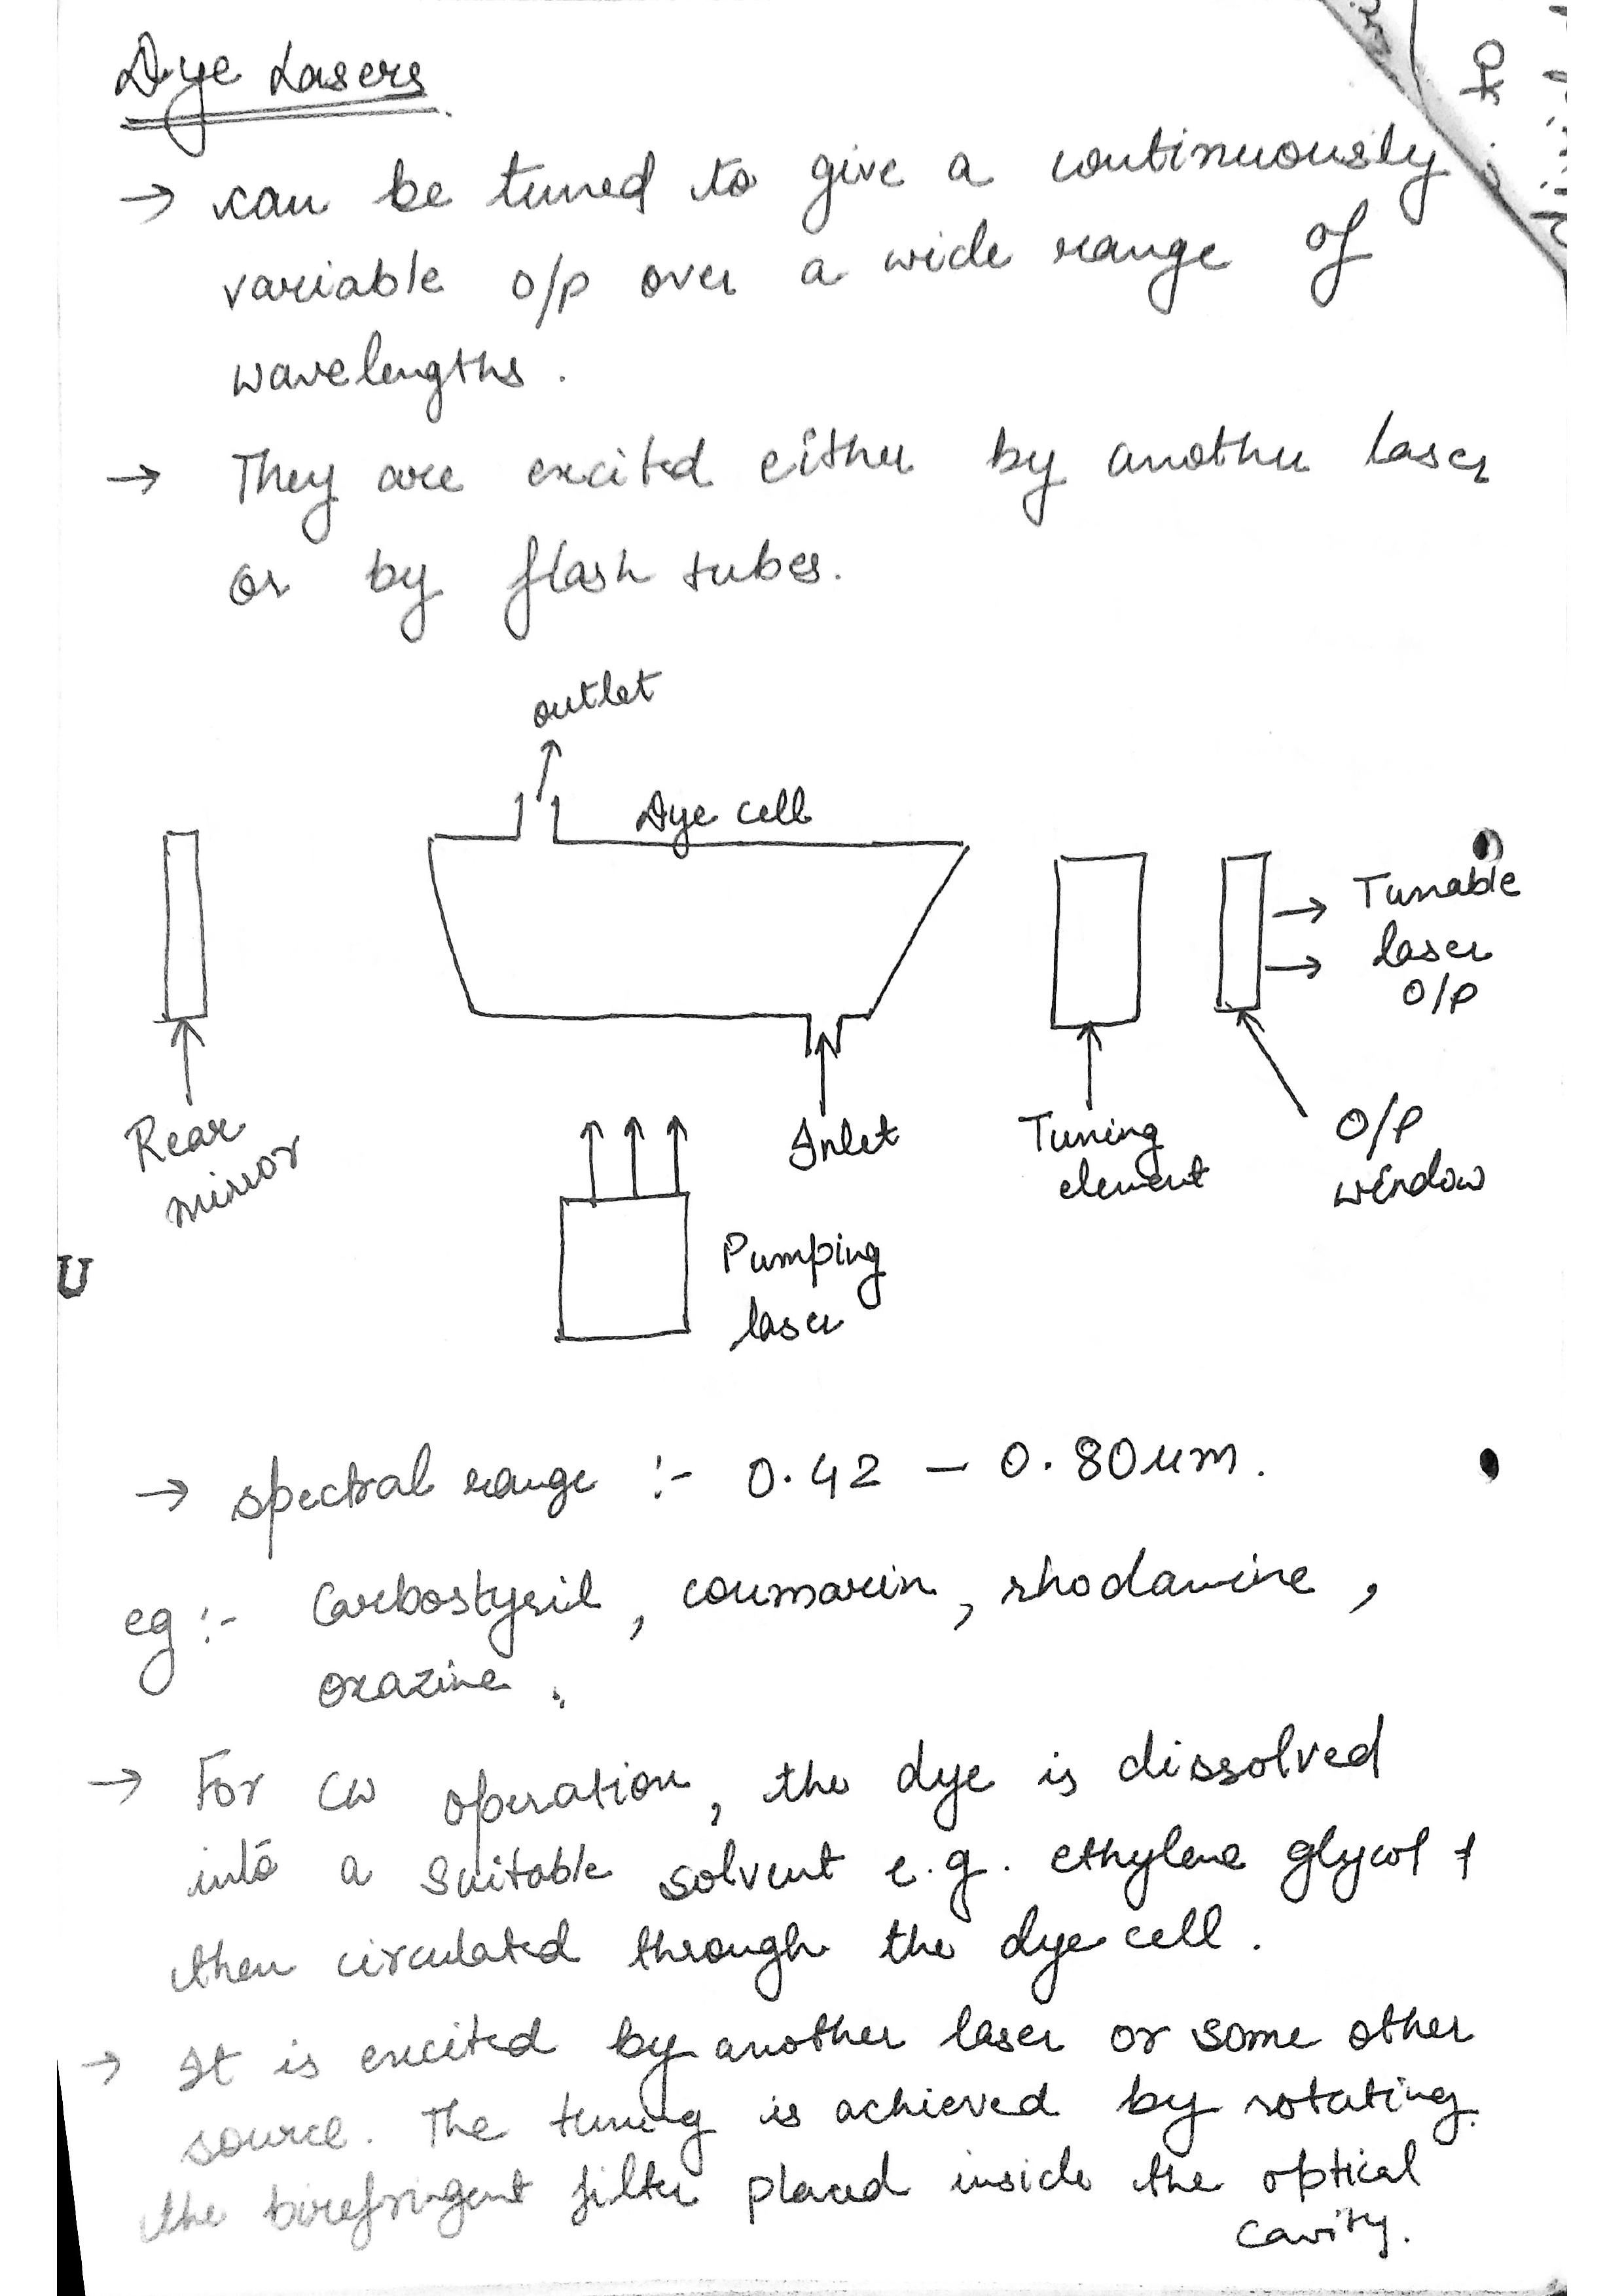 Dye Lasers
→ can be tuned to give a continuously
variable o/p over a wide range of
wavelengths.
→ They are excited either by another laser
or by flash tubes.
outlet
Dye cell
Tunable
laser
O/P
Rear
mirror
Inlet
Tuning
element
O/P
window
Pumping
laser
U
→ spectral range :- 0.42 - 0.80 um.
eg :- Carbostyril, coumarin, rhodamine,
oxazine.
→ For CW operation, the dye is dissolved
into a suitable solvent e.g. ethylene glycol &
then circulated through the dye cell.
→ It is excited by another laser or some other
source. The tuning is achieved by rotating
the birefringent filter placed inside the optical
cavity.